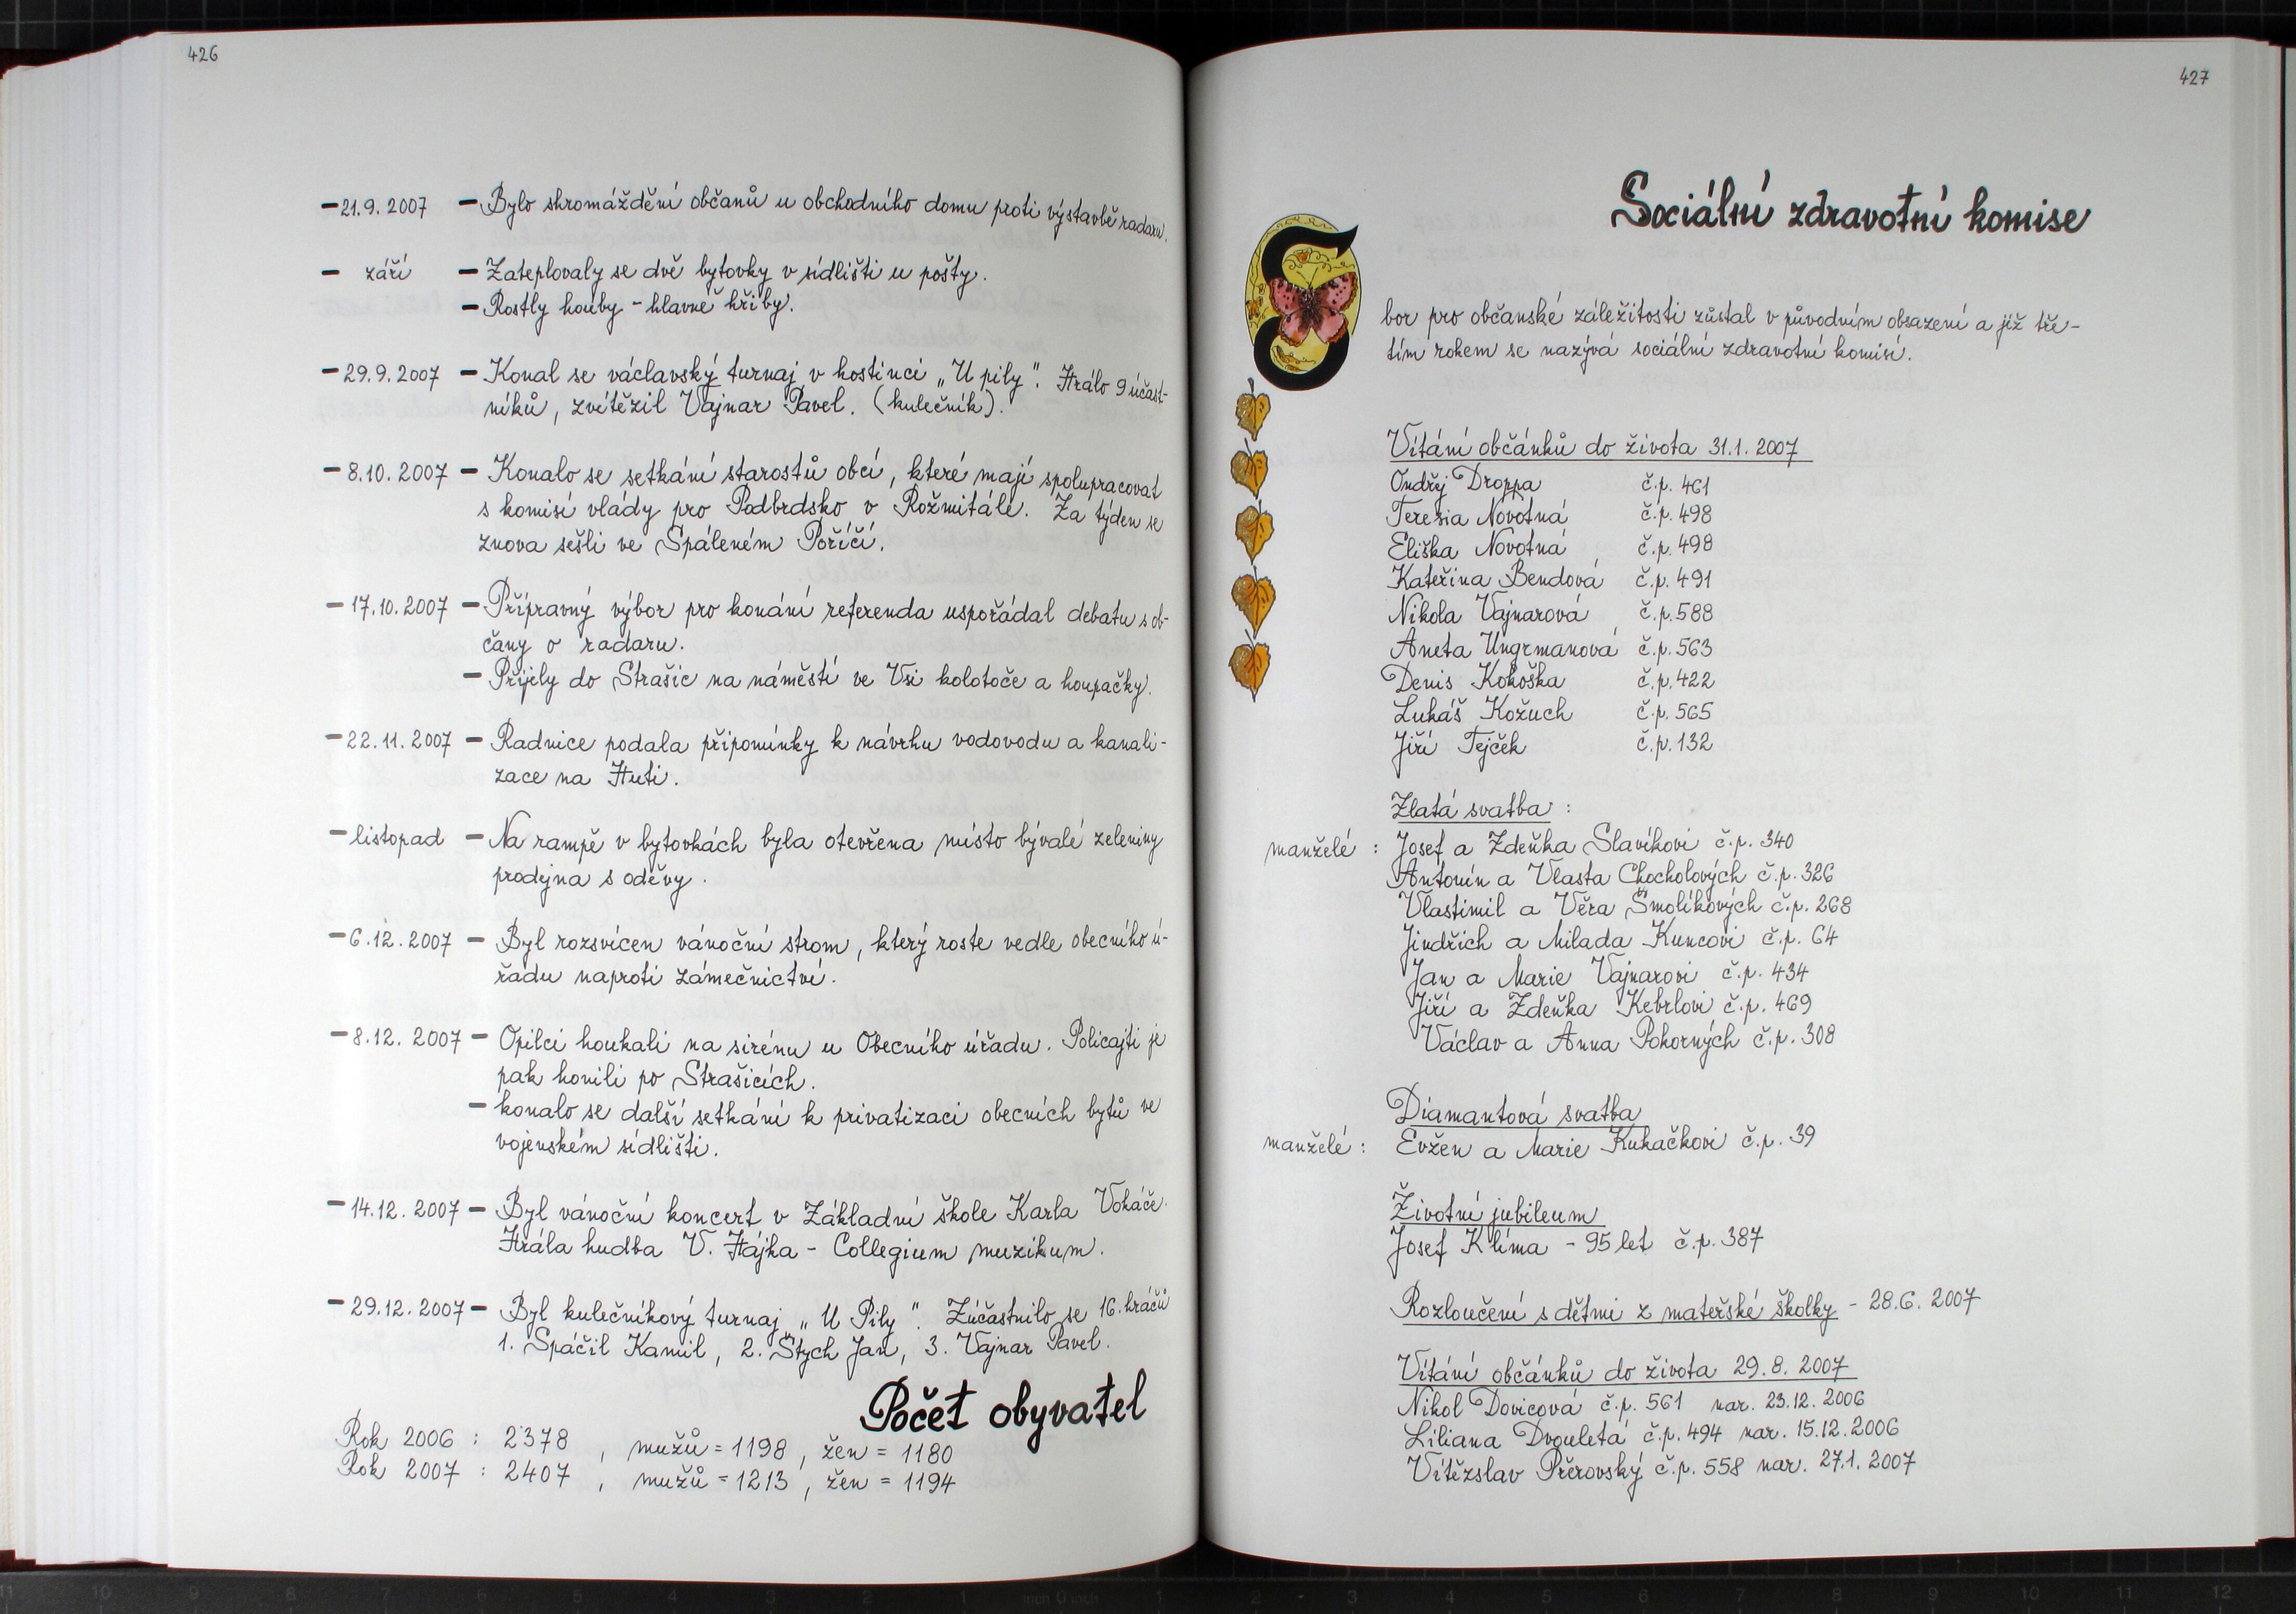 426
- 21.9.2007 - Bylo shromáždění občanů u obchodního domu proti výstavbě radaru.
- září - Zateplovaly se dvě bytovky v sídlišti u pošty.
- Rostly houby - hlavně hřiby.
- 29.9.2007 - Konal se václavský turnaj v hostinci „U pily". Hrálo 9 účast-
níků, zvítězil Vajnar Pavel. (kulečník).
- 8.10.2007 - Konalo se setkání starostů obcí, které mají spolupracovat
s komisí vlády pro Podbrdsko v Rožmitále. Za týden se
znova sešli ve Spáleném Poříčí.
- 17.10.2007 - Přípravný výbor pro konání referenda uspořádal debatu s ob-
čany o radaru.
- Přijely do Strašic na náměstí ve Vsi kolotoče a houpačky.
- 22.11.2007 - Radnice podala připomínky k návrhu vodovodu a kanali-
zace na Huti.
- listopad - Na rampě v bytovkách byla otevřena místo bývalé zeleniny
prodejna s oděvy.
- 6.12.2007 - Byl rozsvícen vánoční strom, který roste vedle obecního ú-
řadu naproti zámečnictví.
- 8.12.2007 - Opilci houkali na sirénu u Obecního úřadu. Policajti je
pak honili po Strašicích.
- konalo se další setkání k privatizaci obecních bytů ve
vojenském sídlišti.
- 14.12.2007 - Byl vánoční koncert v Základní škole Karla Vokáče.
Hrála hudba V. Hájka - Collegium muzikum.
- 29.12.2007 - Byl kulečníkový turnaj „U Pily". Zúčastnilo se 16. hráčů
1. Spáčil Kamil, 2. Štych Jan, 3. Vajnar Pavel.
Počet obyvatel
Rok 2006 : 2378 , mužů = 1198 , žen = 1180
Rok 2007 : 2407 , mužů = 1213 , žen = 1194
427
Sociální zdravotní komise
S
bor pro občanské záležitosti zůstal v původním obsazení a již tře-
tím rokem se nazývá sociální zdravotní komisí.
Vítání občánků do života 31.1.2007
Ondřej Droppa č.p. 461
Teresia Novotná č.p. 498
Eliška Novotná č.p. 498
Kateřina Bendová č.p. 491
Nikola Vajnarová č.p. 588
Aneta Ungrmanová č.p. 563
Denis Kokoška č.p. 422
Lukáš Kožuch č.p. 565
Jiří Tejček č.p. 132
Zlatá svatba :
manželé : Josef a Zdeňka Slavíkovi č.p. 340
Antonín a Vlasta Chocholových č.p. 326
Vlastimil a Věra Šmolíkových č.p. 268
Jindřich a Milada Kuncovi č.p. 64
Jan a Marie Vajnarovi č.p. 434
Jiří a Zdeňka Kebrlovi č.p. 469
Václav a Anna Pokorných č.p. 308
Diamantová svatba
manželé : Evžen a Marie Kukačkovi č.p. 39
Životní jubileum
Josef Klíma - 95 let č.p. 387
Rozloučení s dětmi z mateřské školky - 28.6.2007
Vítání občánků do života 29.8.2007
Nikol Dovicová č.p. 561 nar. 23.12.2006
Liliana Dvouletá č.p. 494 nar. 15.12.2006
Vítězslav Přerovský č.p. 558 nar. 27.1.2007